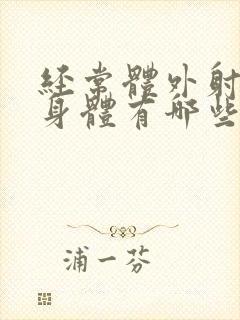 經常體外射
身體有哪些
浦一芬